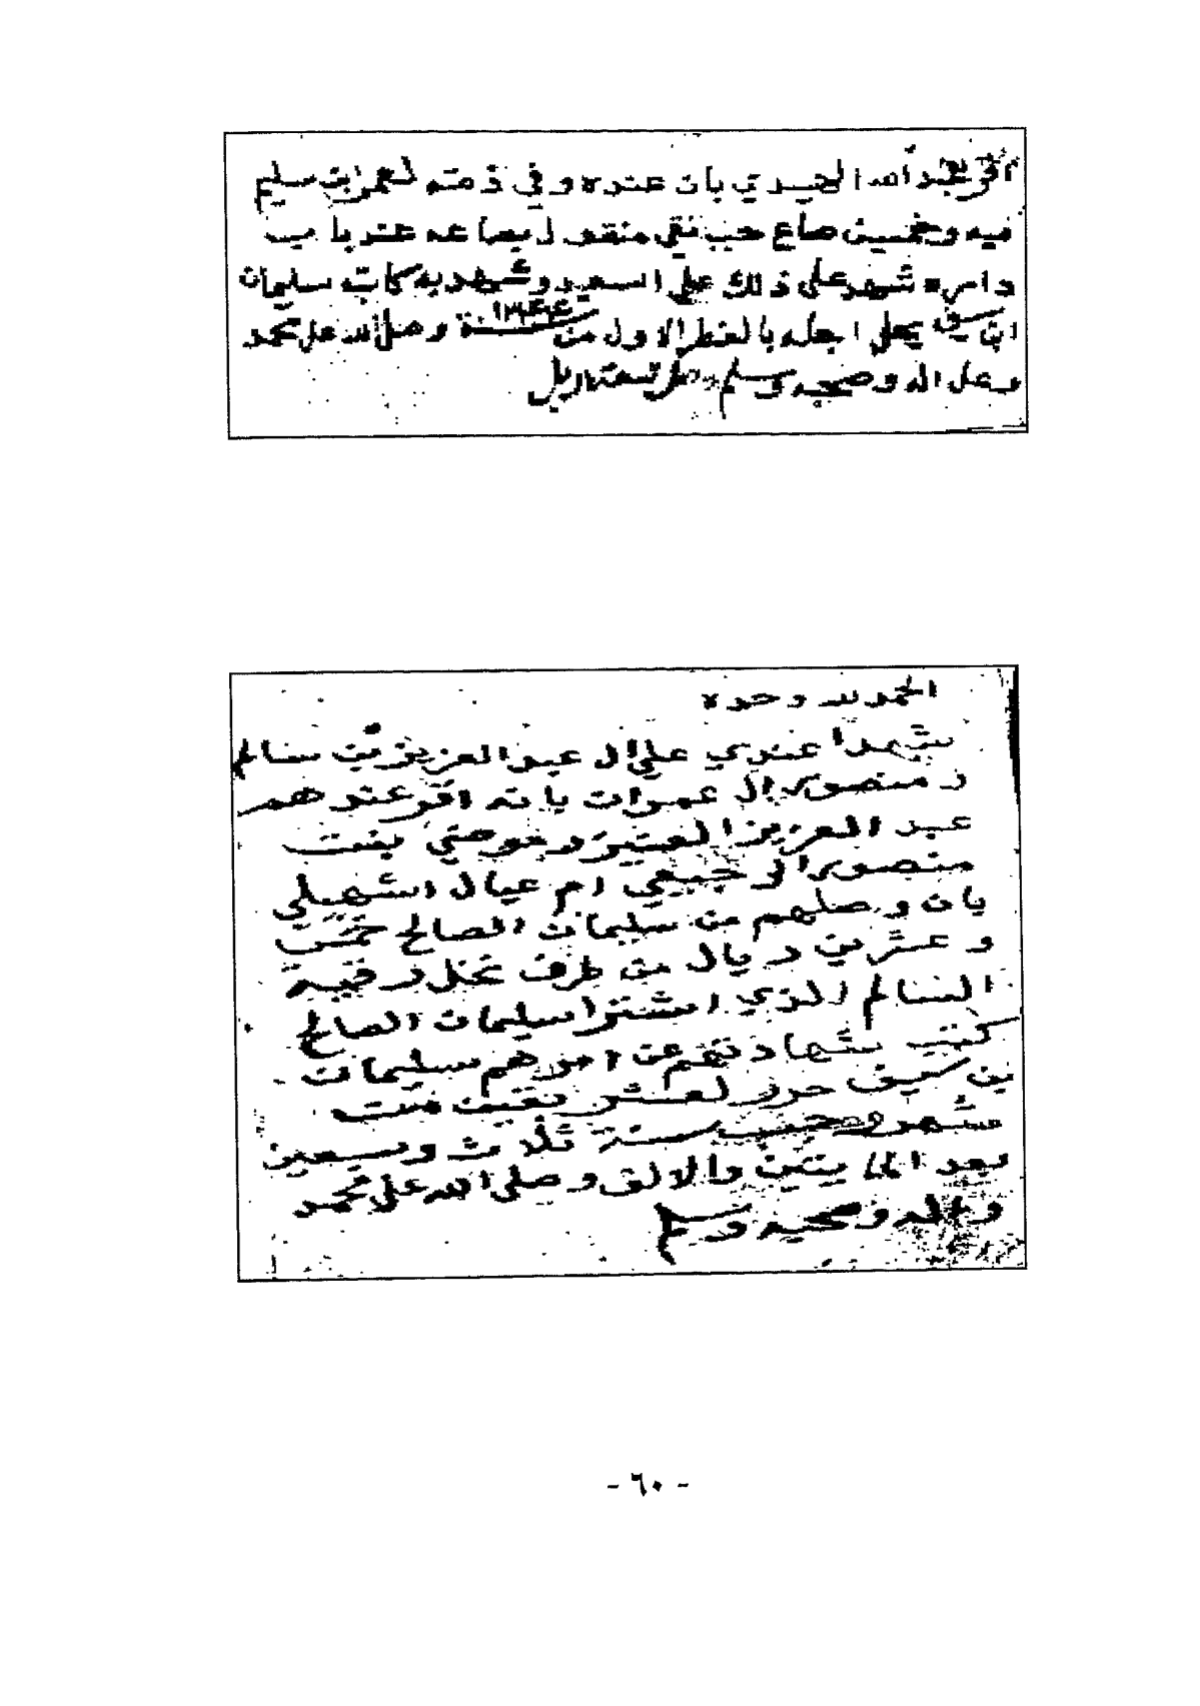 أقر عبد الله الحميدي بان عنده وفي ذمته لعمر ابن سليم
ميه وخمسين صاع حب نقي منقول بصاعه عند باب
داره شهد على ذلك علي السعيد وشهد به كاتبه سليمان
ابن سيف يحلي اجله بالفطر الاول من سنة ١٢٤٤ وصلى الله على محمد
وعلى اله وصحبه وسلم تسعة اريل
الحمد لله وحده
شهدا عندي علي ال عبد العزيز بن سالم
و منصور ال عمران بانه اقر عندهم
عبد العزيز وموضي بنت
منصور ام عيال اشهيلي
بان وصلهم من سليمان الصالح خمس
وعشرين ريال من طرف نخل رقية
السالم الذي اشترا سليمان الصالح
كتب شهادتهم عن امرهم سليمان
بن سيف حرر لعشر بقين من
شهر رجب سنة ثلاث وسبعين
بعد المايتين والالف وصلى الله على محمد
واله وصحبه وسلم
- ٦٠ -